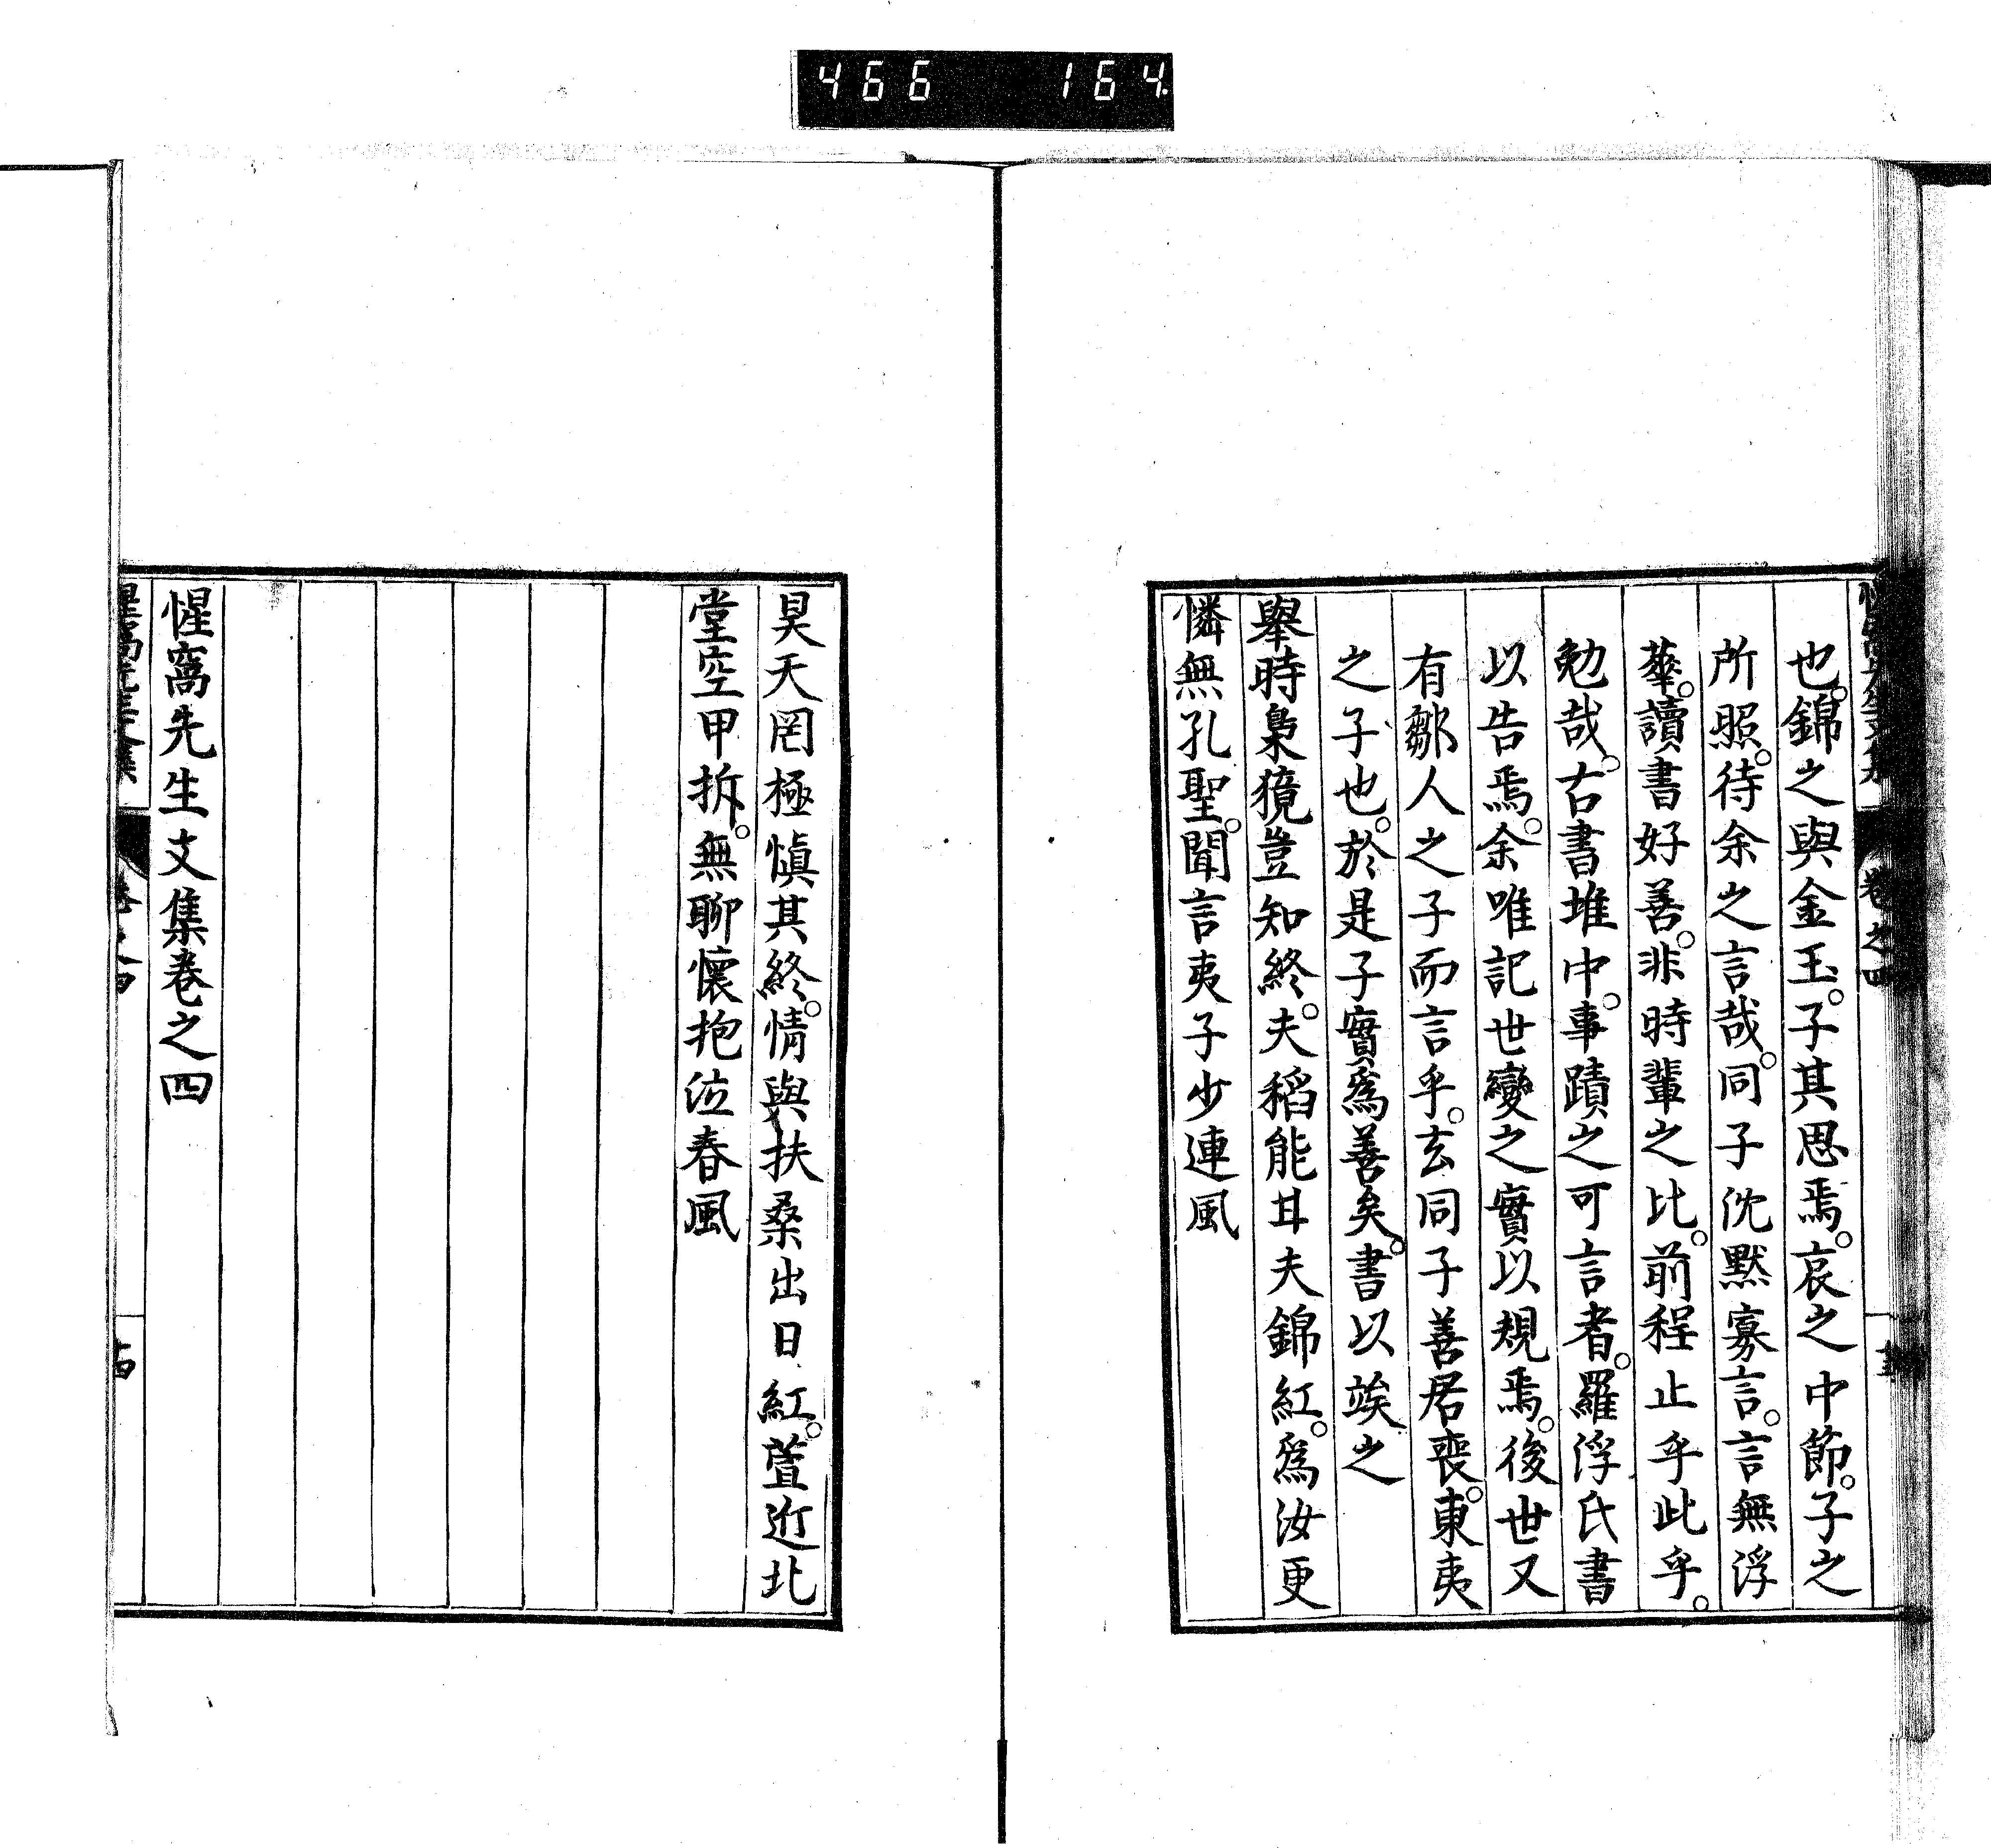 466 164.
也。錦之與金玉。子其思焉。哀之中節。子之
所照。待余之言哉。同子沈默寡言。言無浮
華。讀書好善。非時輩之比。前程止乎此乎。
勉哉。古書堆中。事蹟之可言者。羅浮氏書
以告焉。余唯記世變之實以規焉。後世又
有鄒人之子而言乎。玄同子善居喪。東夷
之子也。於是子實爲善矣。書以竢之
舉時梟獍豈知終。夫稻能甘夫錦紅。爲汝更
憐無孔聖。聞言夷子少連風
昊天罔極愼其終。情與扶桑出日紅。萱近北
堂空甲拆。無聊懷抱泣春風
惺窩先生文集卷之四
卷之四